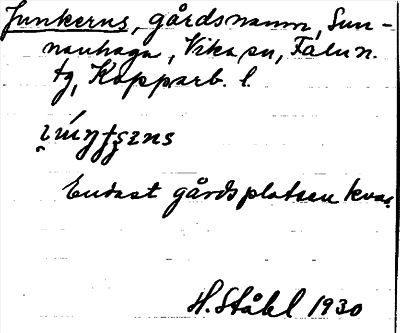 Junkerns, gårdsnamn, Sun-
nanhaga, Vika sn, Falun.
tg, Kopparb. l.
Endast gårdsplatsen kvar
H. Ståhl 1930